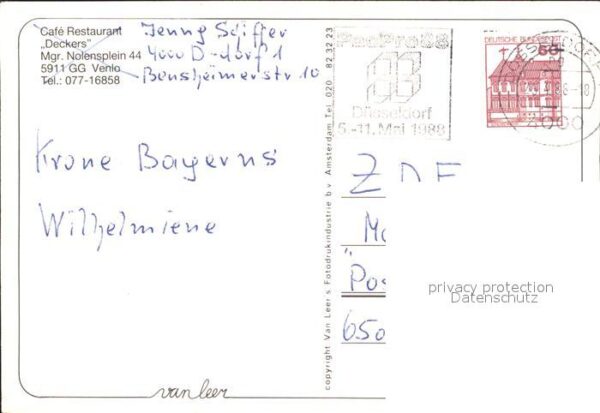 Café Restaurant
„Deckers"
Mgr. Nolensplein 44
5911 GG Venlo
Tel.: 077-16858
Jenny Schiffer
4000 D-dorf 1
Bensheimerstr 10
Krone Bayerns
Wilhelmiene
copyright Van Leer's Fotodrukindustrie b.v. Amsterdam Tel. 020 - 82 32 23
van leer
PacPro88
Düsseldorf
5.-11. Mai 1988
DEUTSCHE BUNDESPOST
60
4000
ZDF
Ma
"Pos
650
privacy protection
Datenschutz